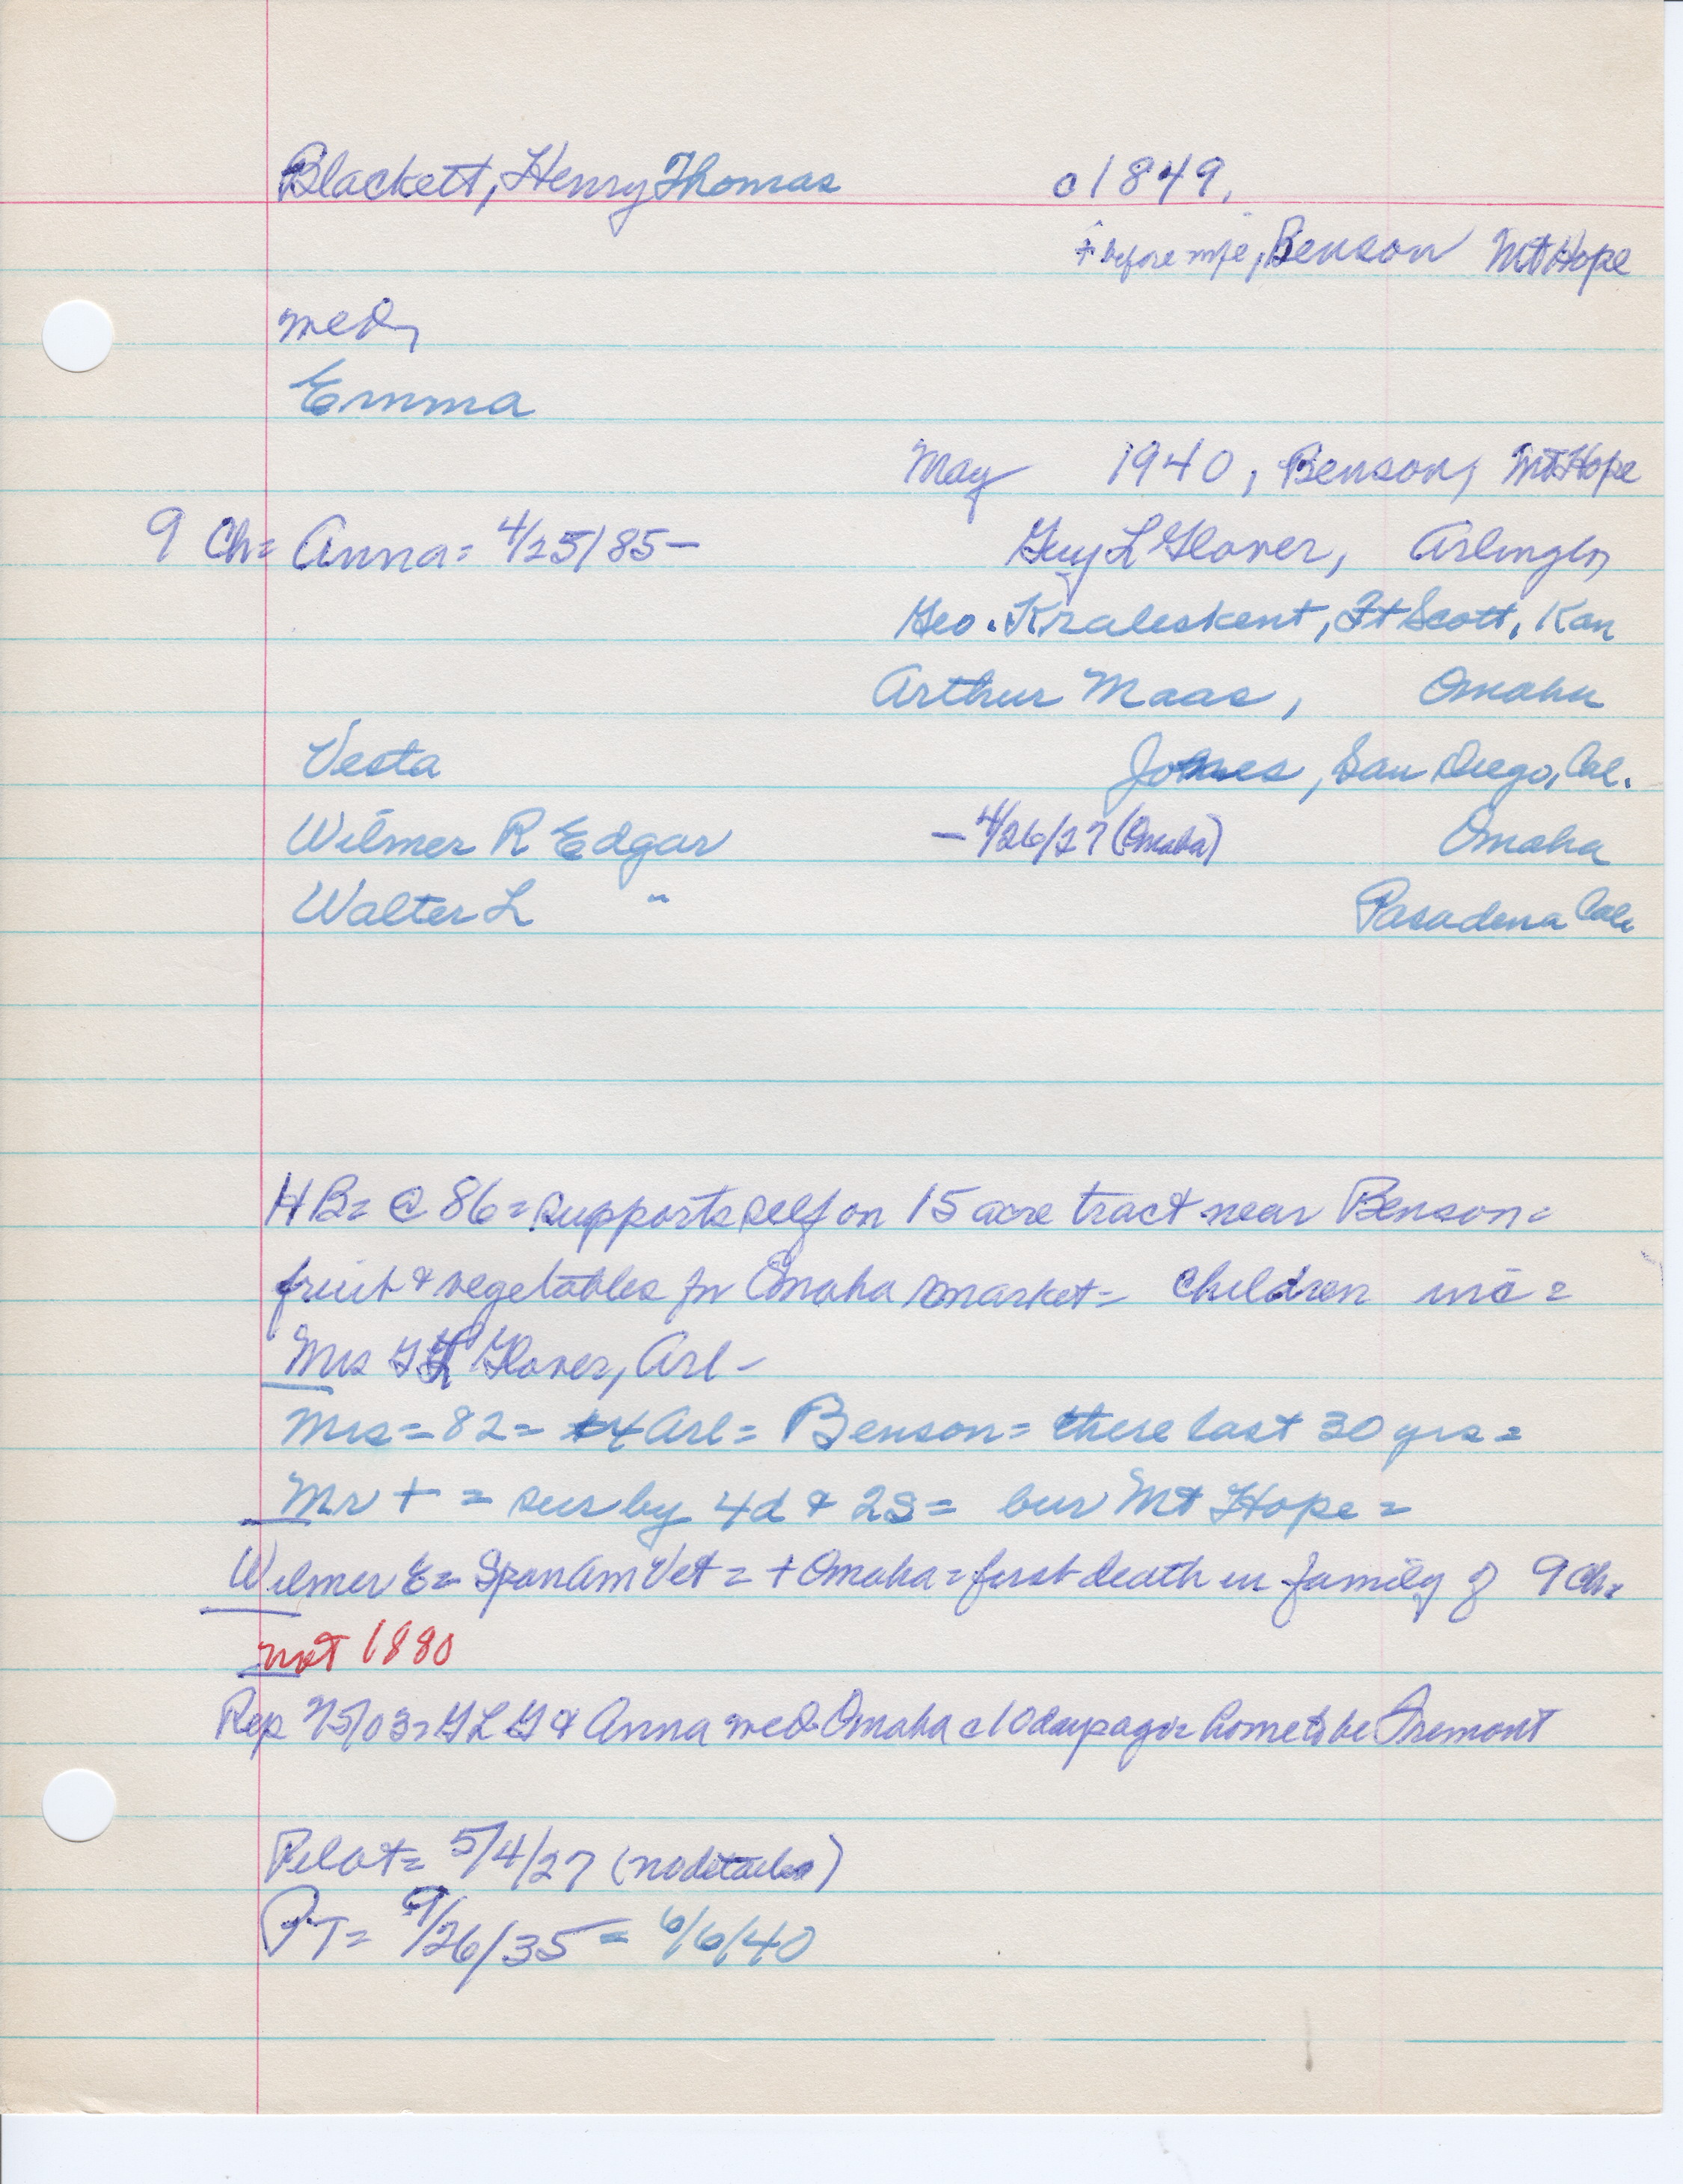 Blackett, Henry Thomas c1849,
+ before wife, Benson Mt Hope
med,
Emma
May 1940, Benson, Mt Hope
9 Ch= Anna= 4/25/85-
Guy L Glover, Arlingtn
Geo. Kraleskent, Ft Scott, Kan
Arthur Maas, Omaha
Vesta Jones, San Diego, Cal.
Wilmer R Edgar - 4/26/27 (Omaha) Omaha
Walter L " Pasadena Cal.
HB= @ 86= supports self on 15 acre tract near Benson=
fruit & vegetables for Omaha market= Children inc=
Mrs G L Glover, Arl-
Mrs= 82= Arl= Benson= there last 30 yrs=
Mr + = sur by 4d & 2s= bur Mt Hope=
Wilmer E= SpanAm Vet= + Omaha= first death in family of 9 Ch=
not 1880
Rep 7/5/03= GLG & Anna med Omaha c10 days ago= home to be Fremont
Pilot= 5/4/27 (no details)
PT= 9/26/35= 6/6/40